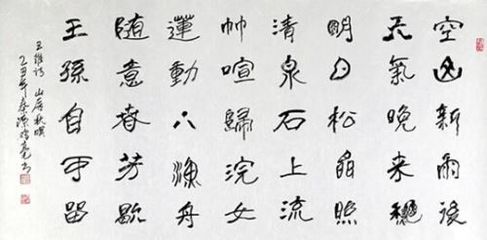 空山新雨後
天氣晚来秋
明月松間照
清泉石上流
竹喧歸浣女
蓮動下漁舟
随意春芳歇
王孫自可留
王維詩 山居秋暝